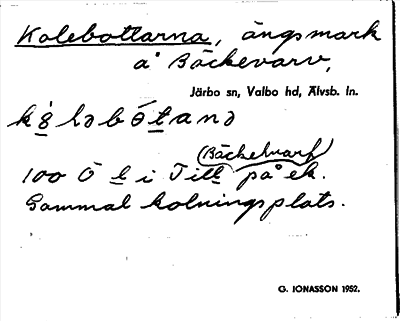 Kolebottarna, ängsmark
å Bäckevarv,
Järbo sn, Valbo hd, Älvsb. ln.
(Bäckelvarf)
100 Ö i Till på ek.
Gammal kolningsplats.
G. JONASSON 1952.